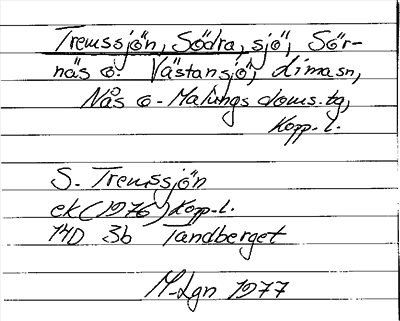 Tremssjön, Södra, sjö, Sör-
näs o. Västansjö, Lima sn,
Nås o. Malungs doms.tg,
Kopp. l.
S. Tremssjön
ek (1976) Kopp. l.
14D 3b Tandberget
M-Lgn 1977